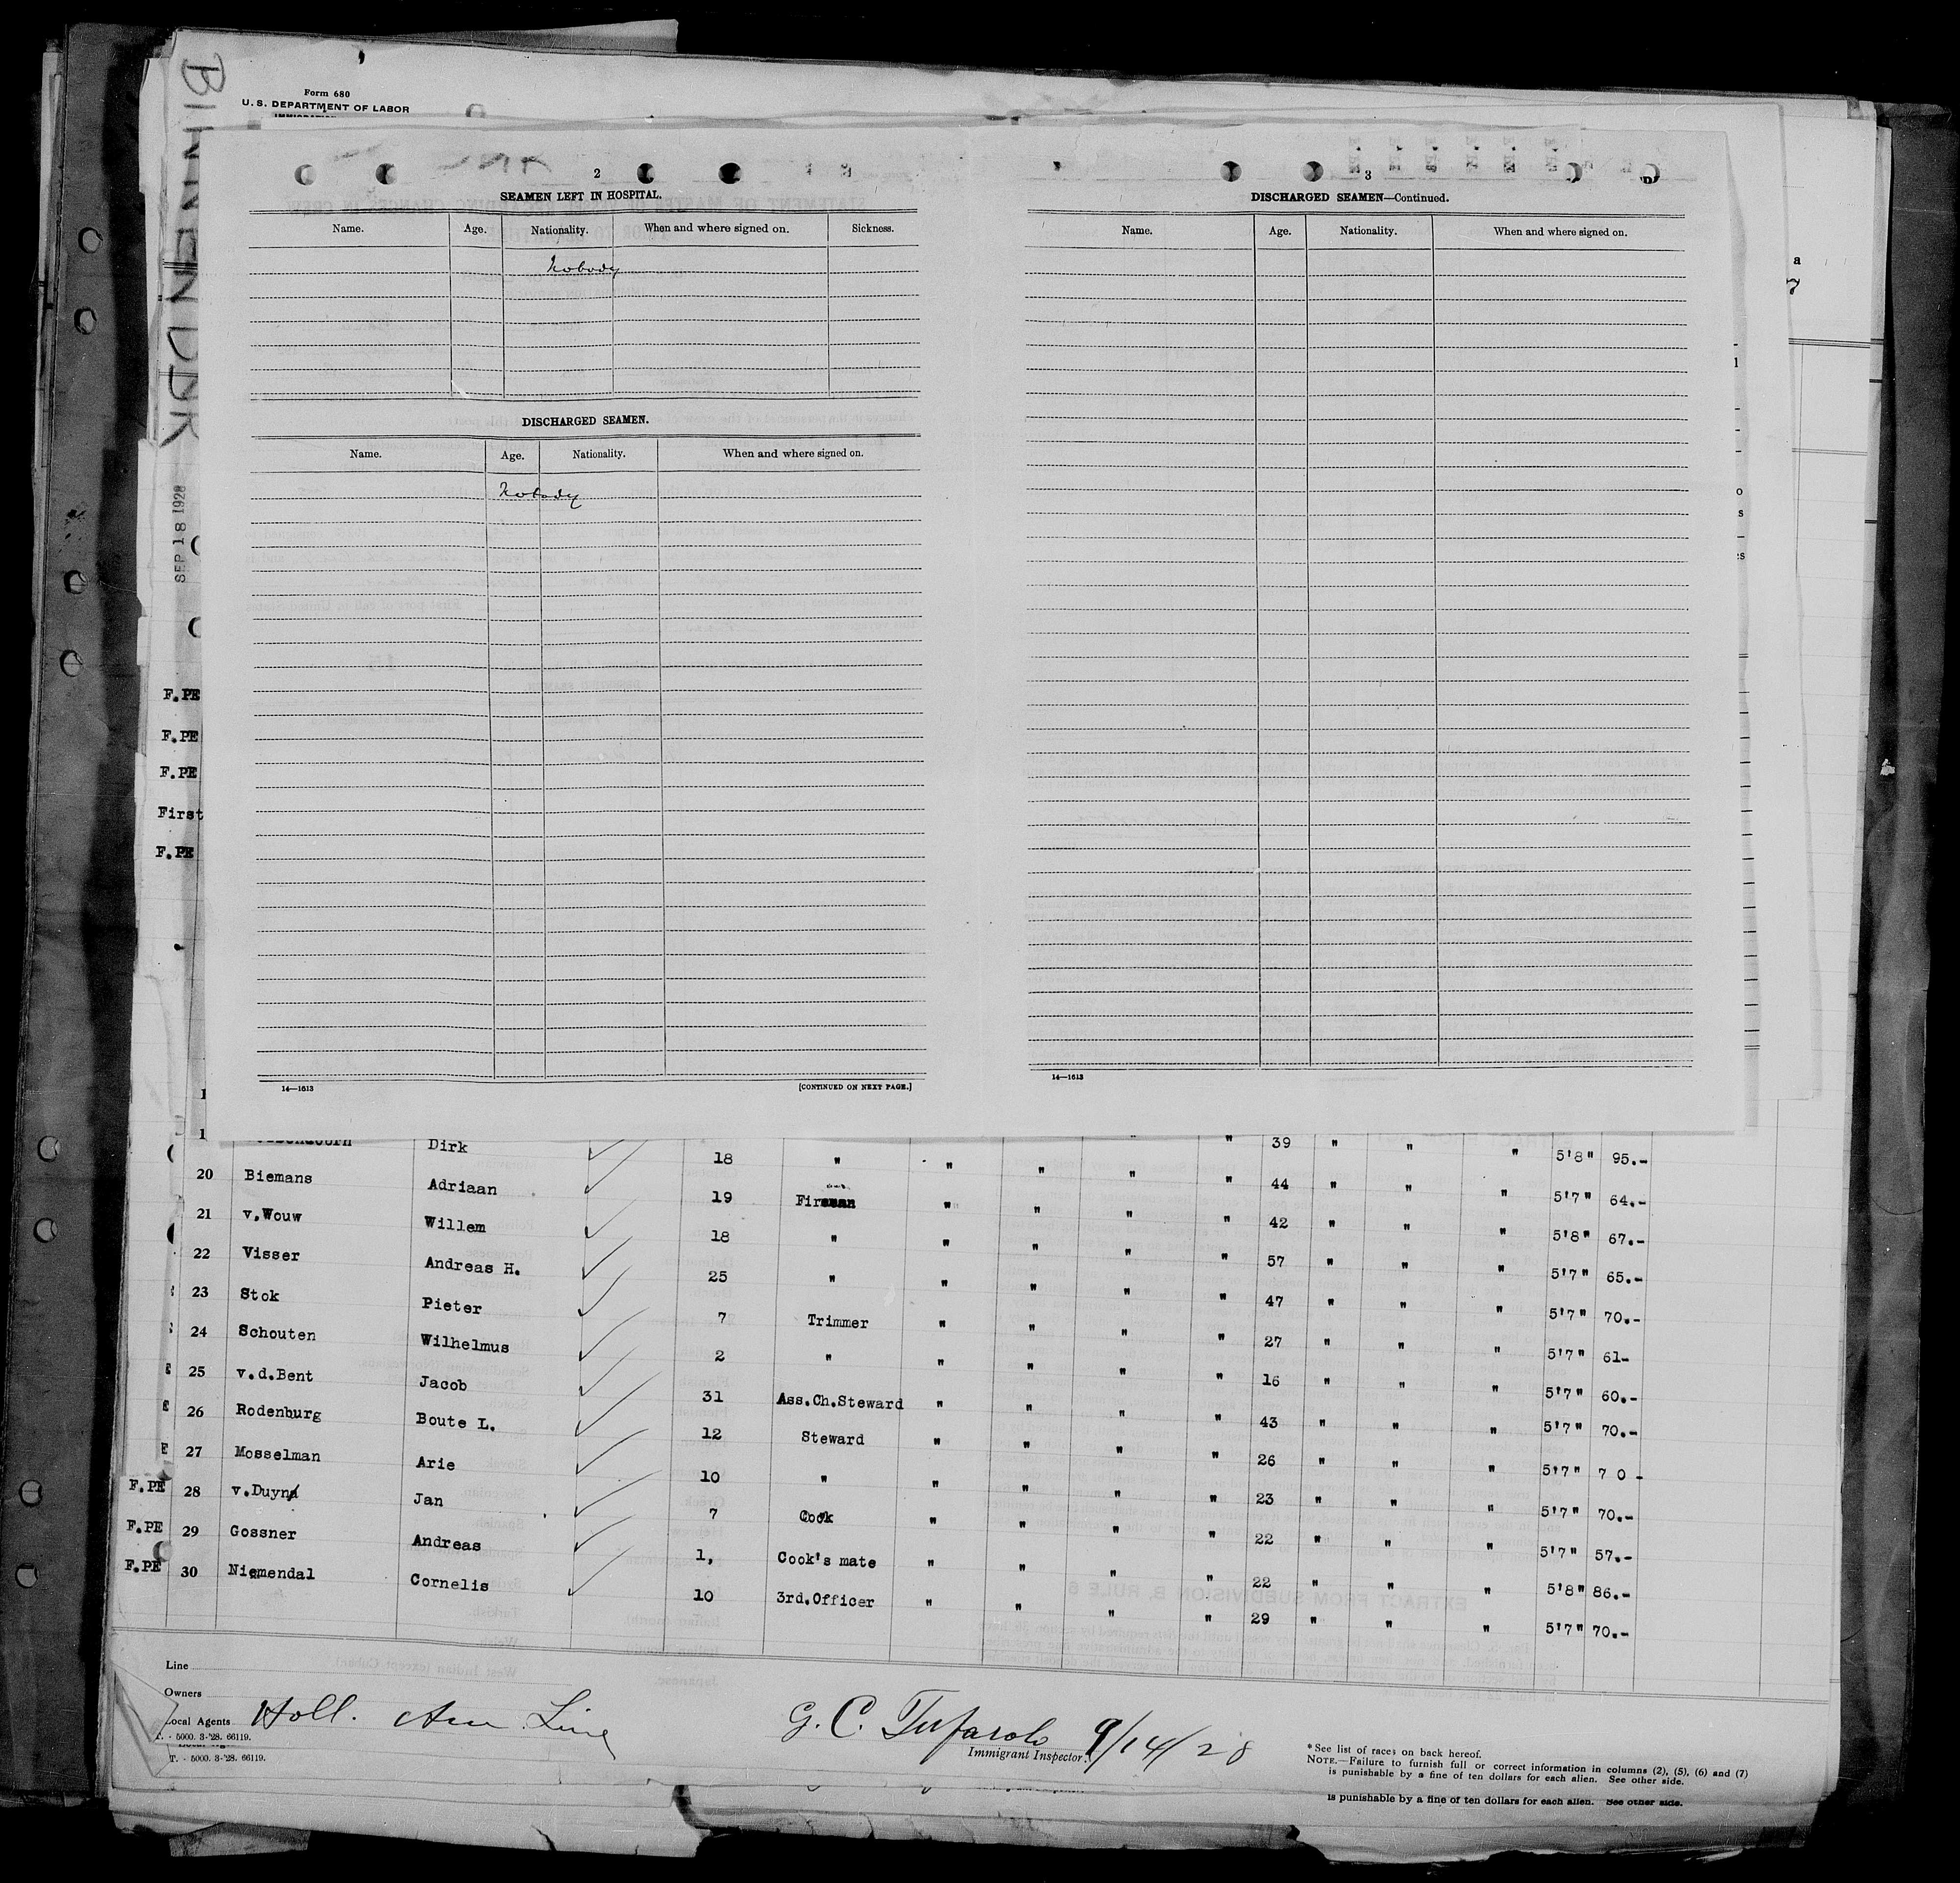 Form 680
U. S. DEPARTMENT OF LABOR
BINNENDIJK
SEP 18 1928
2
SEAMEN LEFT IN HOSPITAL.
Name. Age. Nationality. When and where signed on. Sickness.
Nobody
DISCHARGED SEAMEN.
Name. Age. Nationality. When and where signed on.
Nobody
14—1613 [CONTINUED ON NEXT PAGE.]
3
DISCHARGED SEAMEN—Continued.
Name. Age. Nationality. When and where signed on.
14—1613
F.PE
F.PE
F.PE
First
F.PE
Dirk 18 " " " " " 39 " " " 5'8" 95.-
20 Biemans Adriaan 19 Fireman " " " " 44 " " " 5'7" 64.-
21 v.Wouw Willem 18 " " " " " 42 " " " 5'8" 67.-
22 Visser Andreas H. 25 " " " " " 57 " " " 5'7" 65.-
23 Stok Pieter 7 Trimmer " " " " 47 " " " 5'7" 70.-
24 Schouten Wilhelmus 2 " " " " " 27 " " " 5'7" 61-
25 v.d.Bent Jacob 31 Ass.Ch.Steward " " " " 16 " " " 5'7" 60.-
26 Rodenburg Boute L. 12 Steward " " " " 43 " " " 5'7" 70.-
27 Mosselman Arie 10 " " " " " 26 " " " 5'7" 7 0 -
F.PE 28 v.Duyn Jan 7 Cook " " " " 23 " " " 5'7" 70.-
F.PE 29 Gossner Andreas 1, Cook's mate " " " " 22 " " " 5'7" 57.-
F.PE 30 Niemendal Cornelis 10 3rd.Officer " " " " 22 " " " 5'8" 86.-
29 " " " 5'7" 70.-
Line
Owners
Local Agents Holl. Am Line
T. - 5000. 3-'28. 66119.
T. - 5000. 3-'28. 66119.
G. C. Tufarolo 9/14/28
Immigrant Inspector.
* See list of races on back hereof.
NOTE.—Failure to furnish full or correct information in columns (2), (5), (6) and (7)
is punishable by a fine of ten dollars for each alien. See other side.
is punishable by a fine of ten dollars for each alien. See other side.